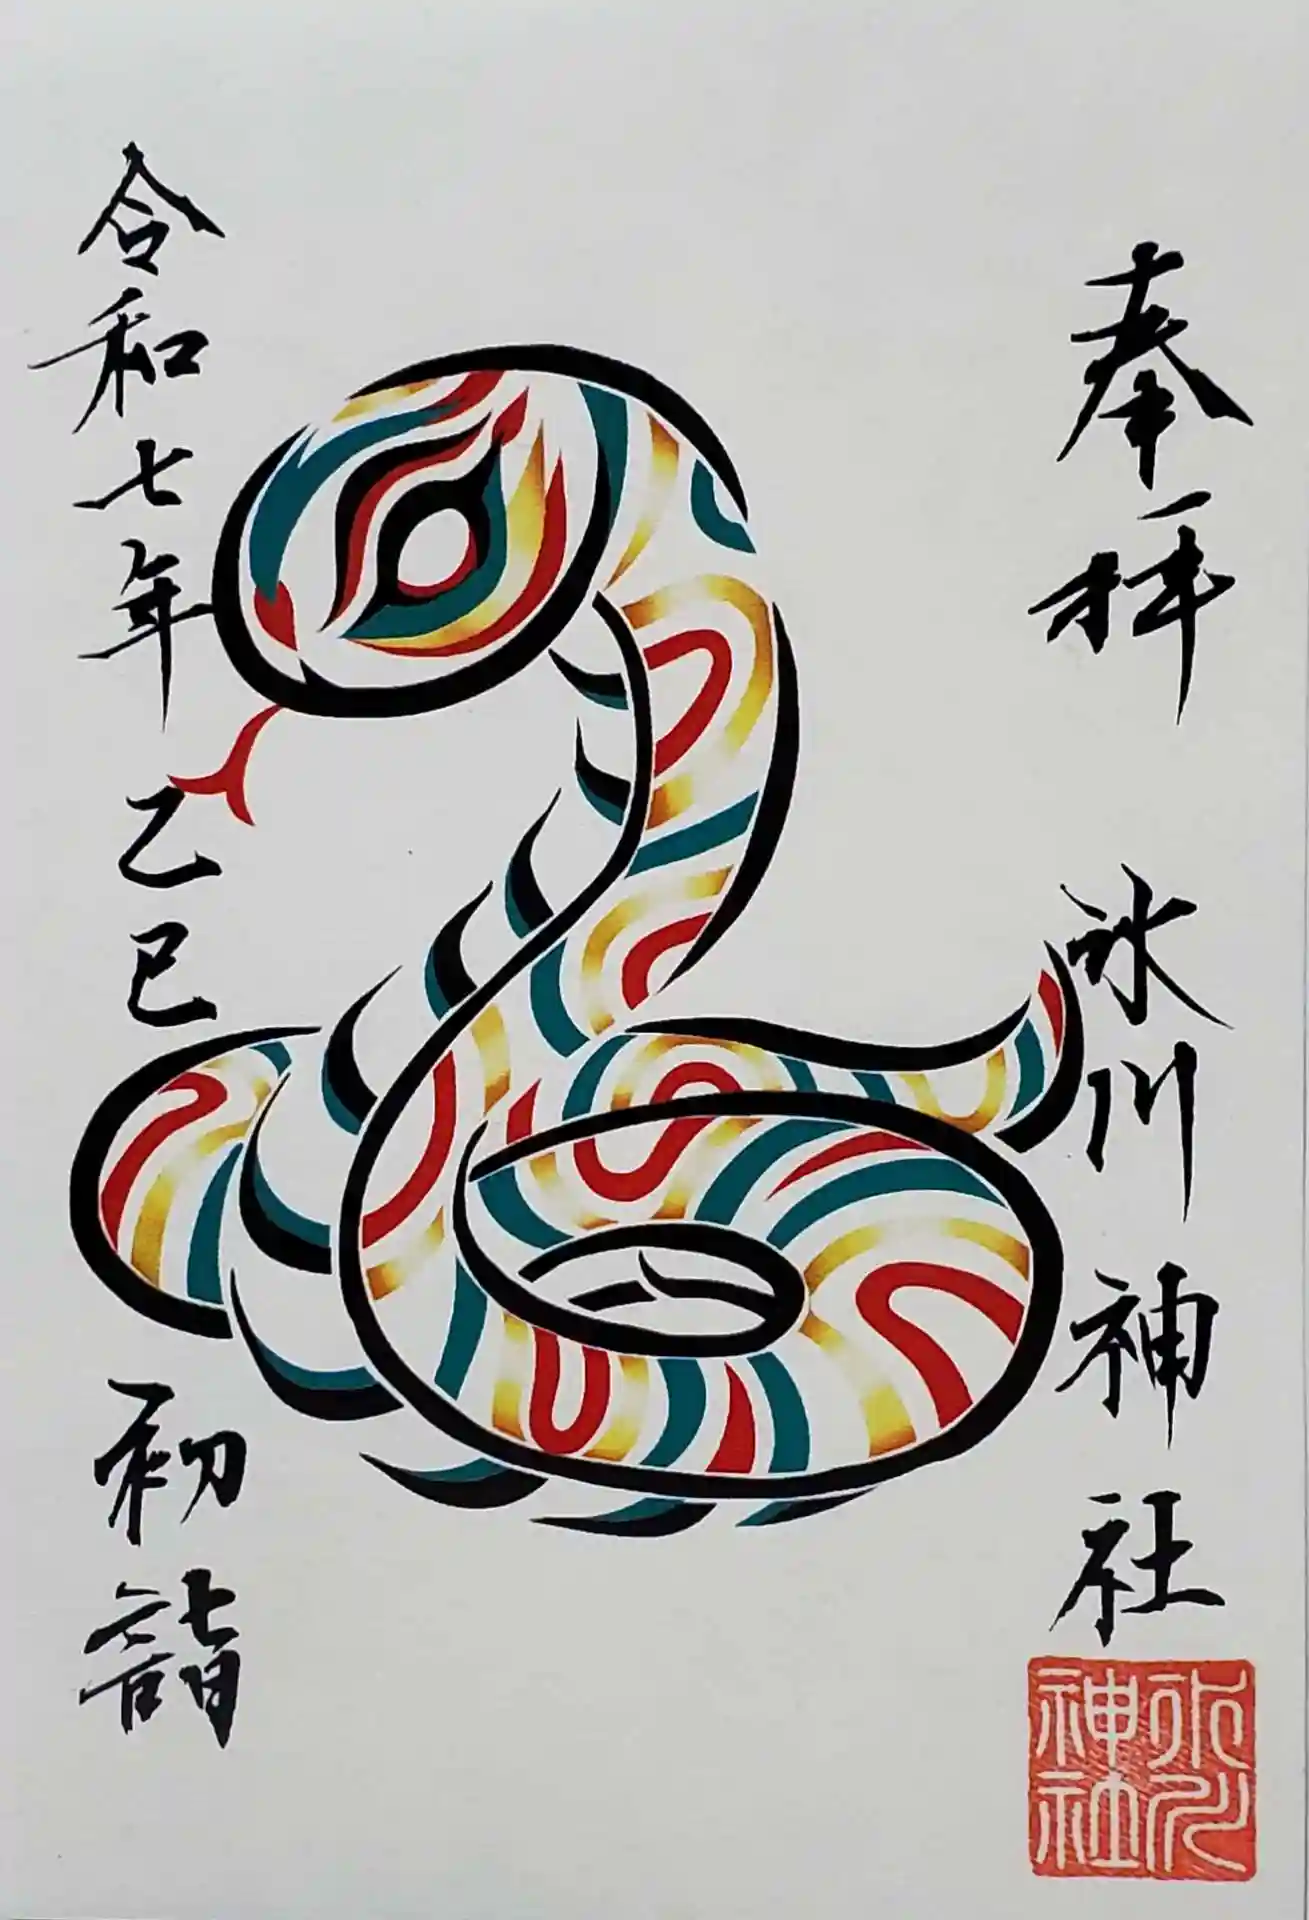 奉拝 氷川神社
氷川
神社
令和七年 乙巳 初詣